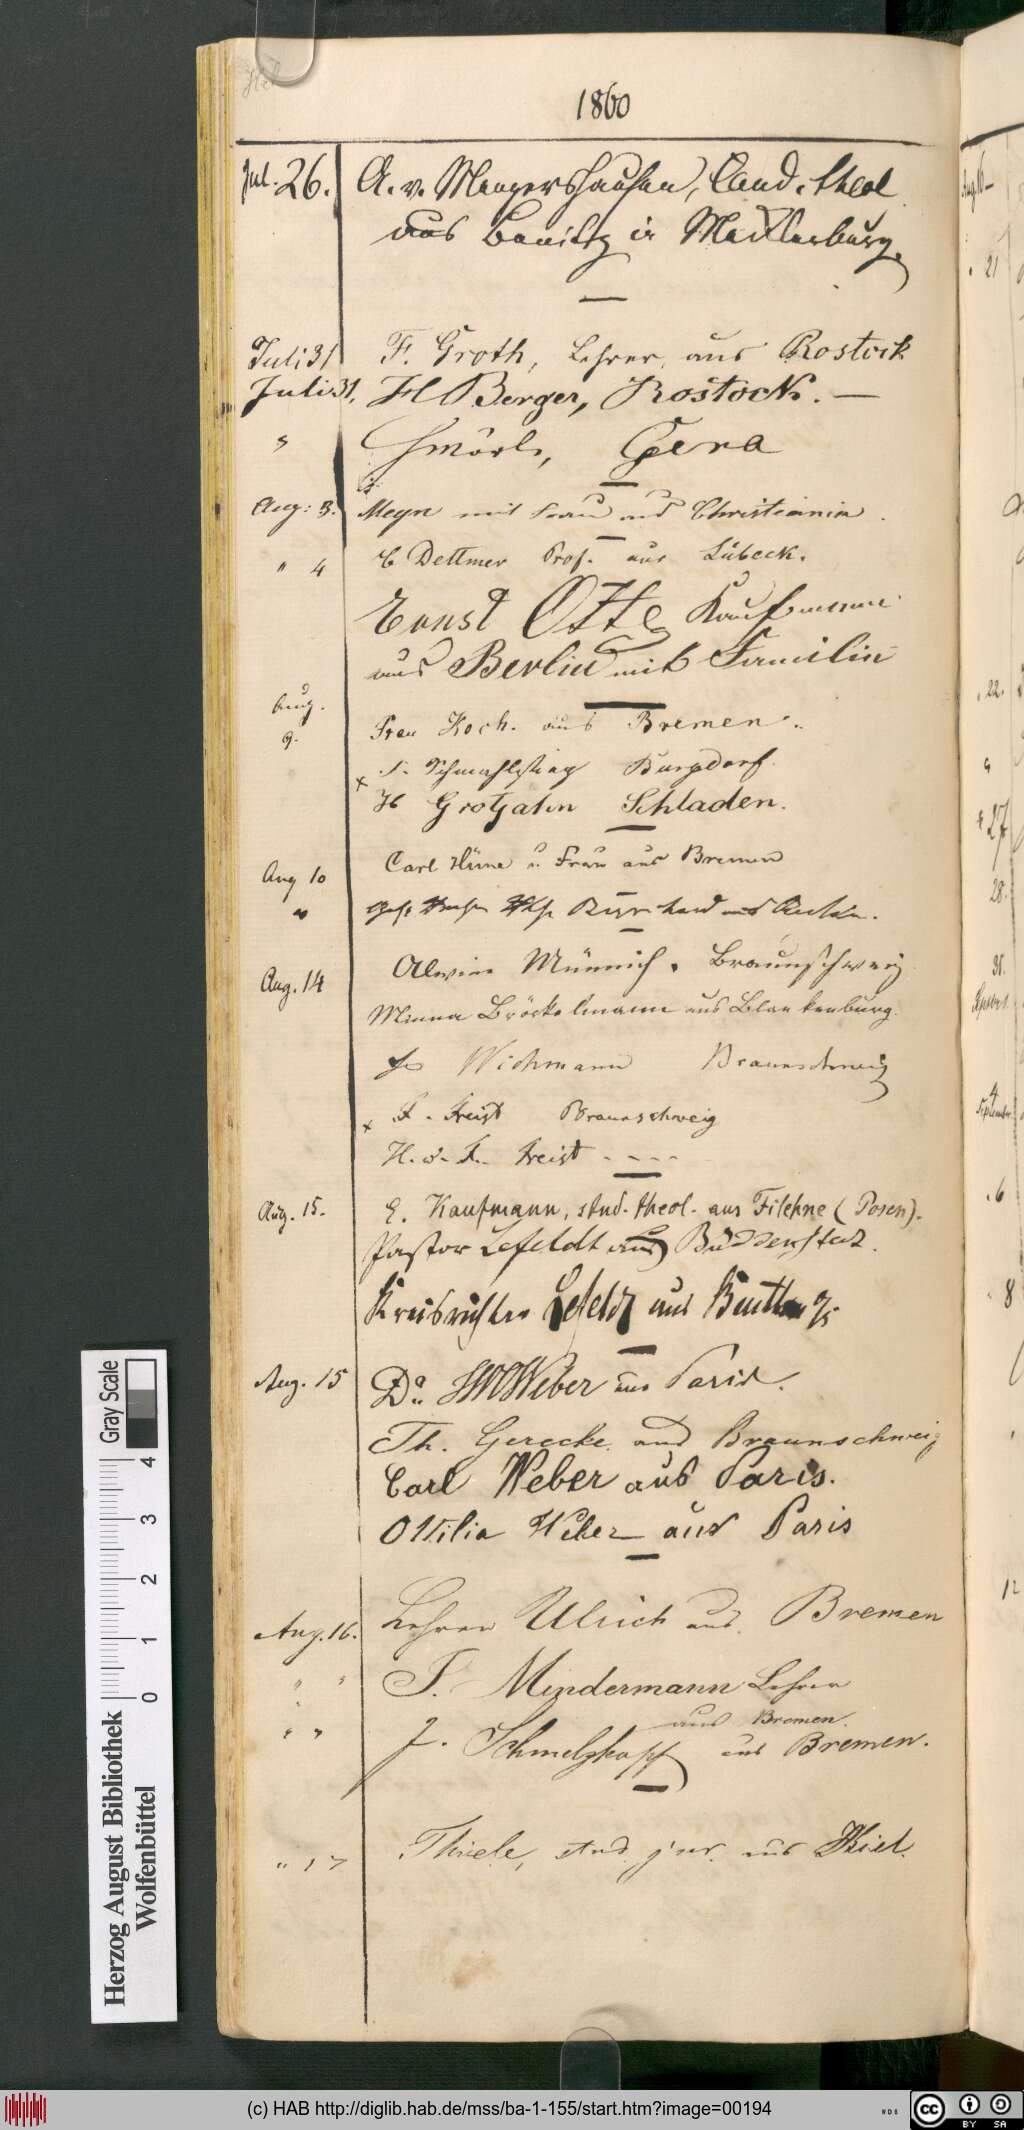 1860
Jul. 26. A. v. Mengershausen, Cand. theol.
aus in Mecklenburg.
Juli 31 F. Groth, Lehrer, aus Rostock
Juli 31. H Berger, Rostock. —
" Gera
Aug: 3. Meyn mit Frau aus Christiania.
" 4 C Dettmer Prof. aus Lübeck.
Ernst Otte Kaufmann
aus Berlin mit Familie
Aug.
9. Frau Koch. aus Bremen.
x Burgdorf.
H Grotjahn Schladen.
Aug 10 Carl u Frau aus Bremen
" aus
Aug. 14 Alwine Münnich. Braunschweig.
Minna Bröckelmann aus Blankenburg.
Wichmann Braunschweig
x F. Freist Braunschweig
H. u. F. Freist - - - -
Aug. 15. E. Kaufmann, stud. theol. aus Filehne (Posen).
Pastor Lefeldt aus Büddenstedt.
Kreisrichter Lefeldt aus
Aug. 15 Dr. Weber aus Paris.
Th. Gerecke aus Braunschweig
Carl Weber aus Paris.
Ottilia Weber aus Paris
Aug. 16. Lehrer Ulrich aus Bremen
" " F. Mindermann Lehrer
aus Bremen.
" " J. Schmelzkopf aus Bremen.
" 17 Thiele, stud. jur. aus Kiel.
Gray Scale
0 1 2 3 4
Herzog August Bibliothek
Wolfenbüttel
(c) HAB http://diglib.hab.de/mss/ba-1-155/start.htm?image=00194
WDB
cc BY SA